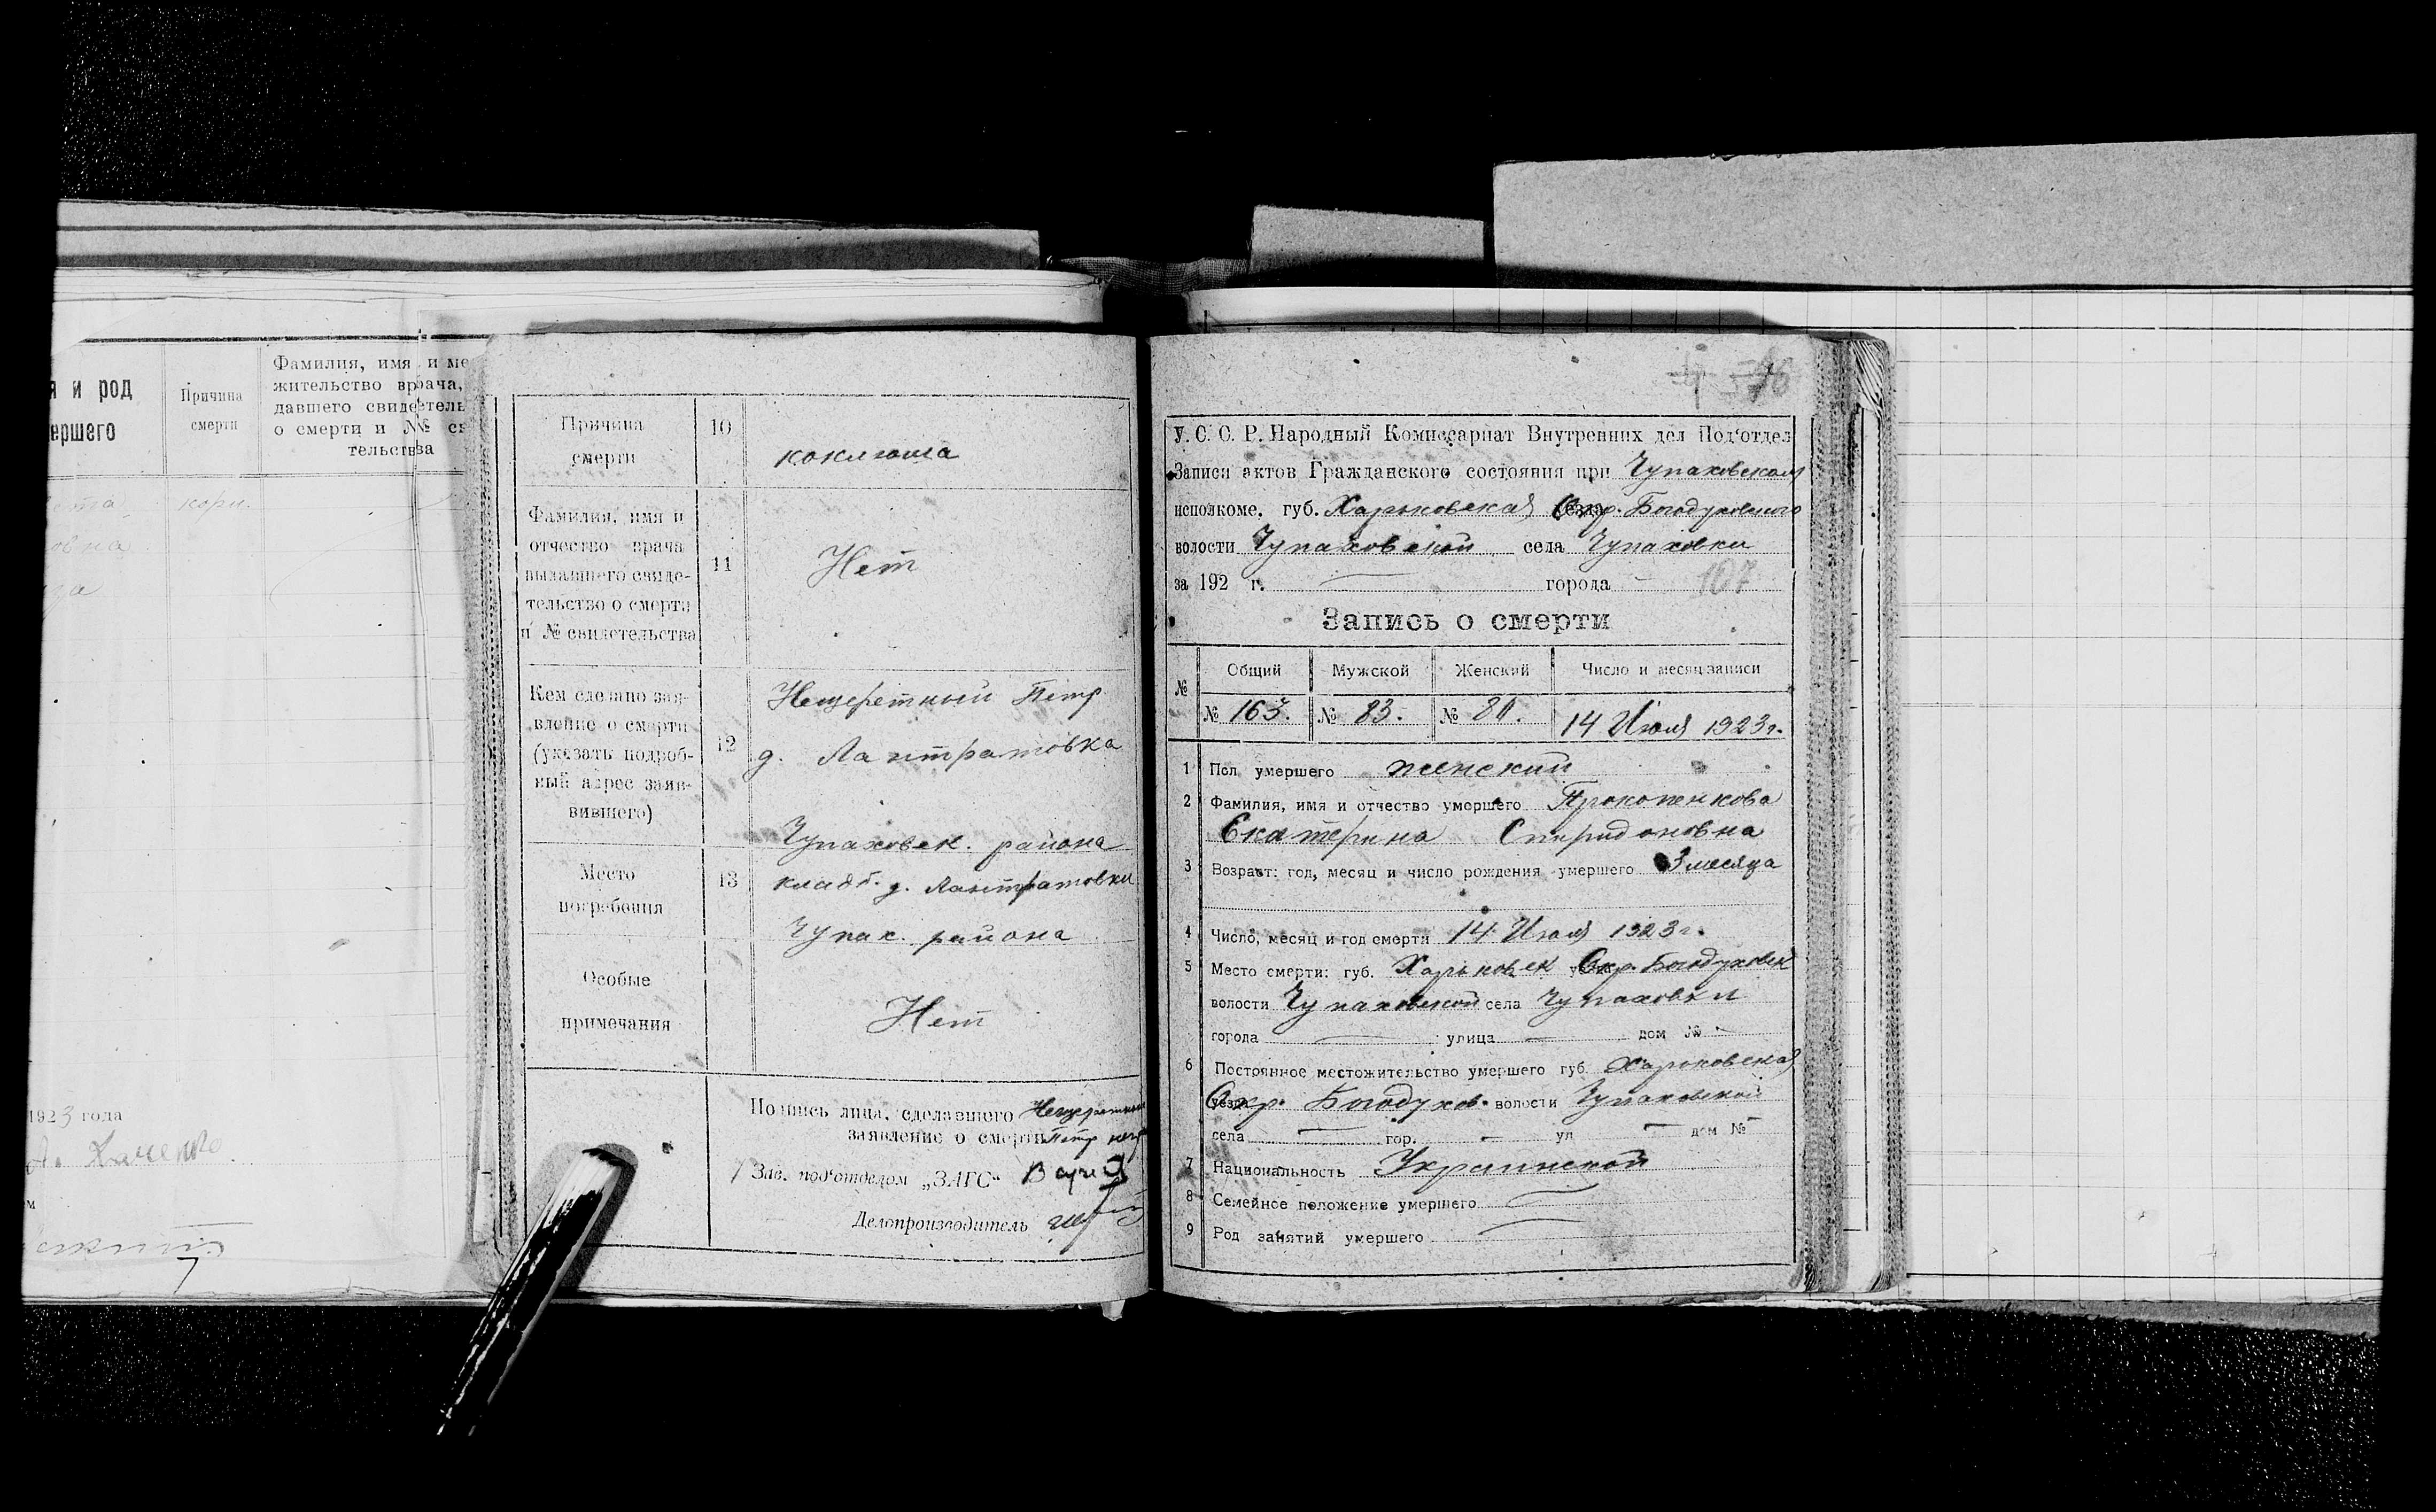 и род
ершего
Причина
смерти
Фамилия, имя и ме
жительство врача,
давшего свидетель
о смерти и №№ св
тельства
кори.
1923 года
Причина
смерти
10
коклюша
Фамилия, имя и
отчество врача
выдавшего свиде-
тельство о смерти
и № свидетельства
11
Нет
Кем сделано зая-
вление о смерти
(указать подроб-
ный адрес заяв-
вившего)
12
Нещеретный Петр
д. Лантратовка
Чупаховск. района
Место
погребения
13
кладб. д. Лантратовки
Чупах. района
Особые
примечания
Нет
Подпись лица, сделавшего Нещеретный
заявление о смерти Петр
Зав. под'отделом „ЗАГС“
Делопроизводитель
У. С. С. Р. Народный Комиссариат Внутренних дел Под'отдел
Записи актов Гражданского состояния при Чупаховском
исполкоме, губ. Харьковская Окр. Богодуховского
волости Чупаховской села Чупаховки
за 192 г. города 107
Запись о смерти
№ Общий Мужской Женский Число и месяц записи
№ 163. № 83. № 80. 14 Июля 1923 г.
1 Пол умершего женский
2 Фамилия, имя и отчество умершего Прокопенкова
Екатерина Спиридоновна
3 Возраст: год, месяц и число рождения умершего 3 месяца
4 Число, месяц и год смерти 14 Июля 1923 г.
5 Место смерти: губ. Харьковск Окр. Богодуховск
волости Чупаховской села Чупаховки
города — улица — дом № -
6 Постоянное местожительство умершего губ. Харьковская
Окр. Богодухов. волости Чупаховской
села — гор. — ул — дом №
7 Национальность Украинской
8 Семейное положение умершего —
9 Род занятий умершего —